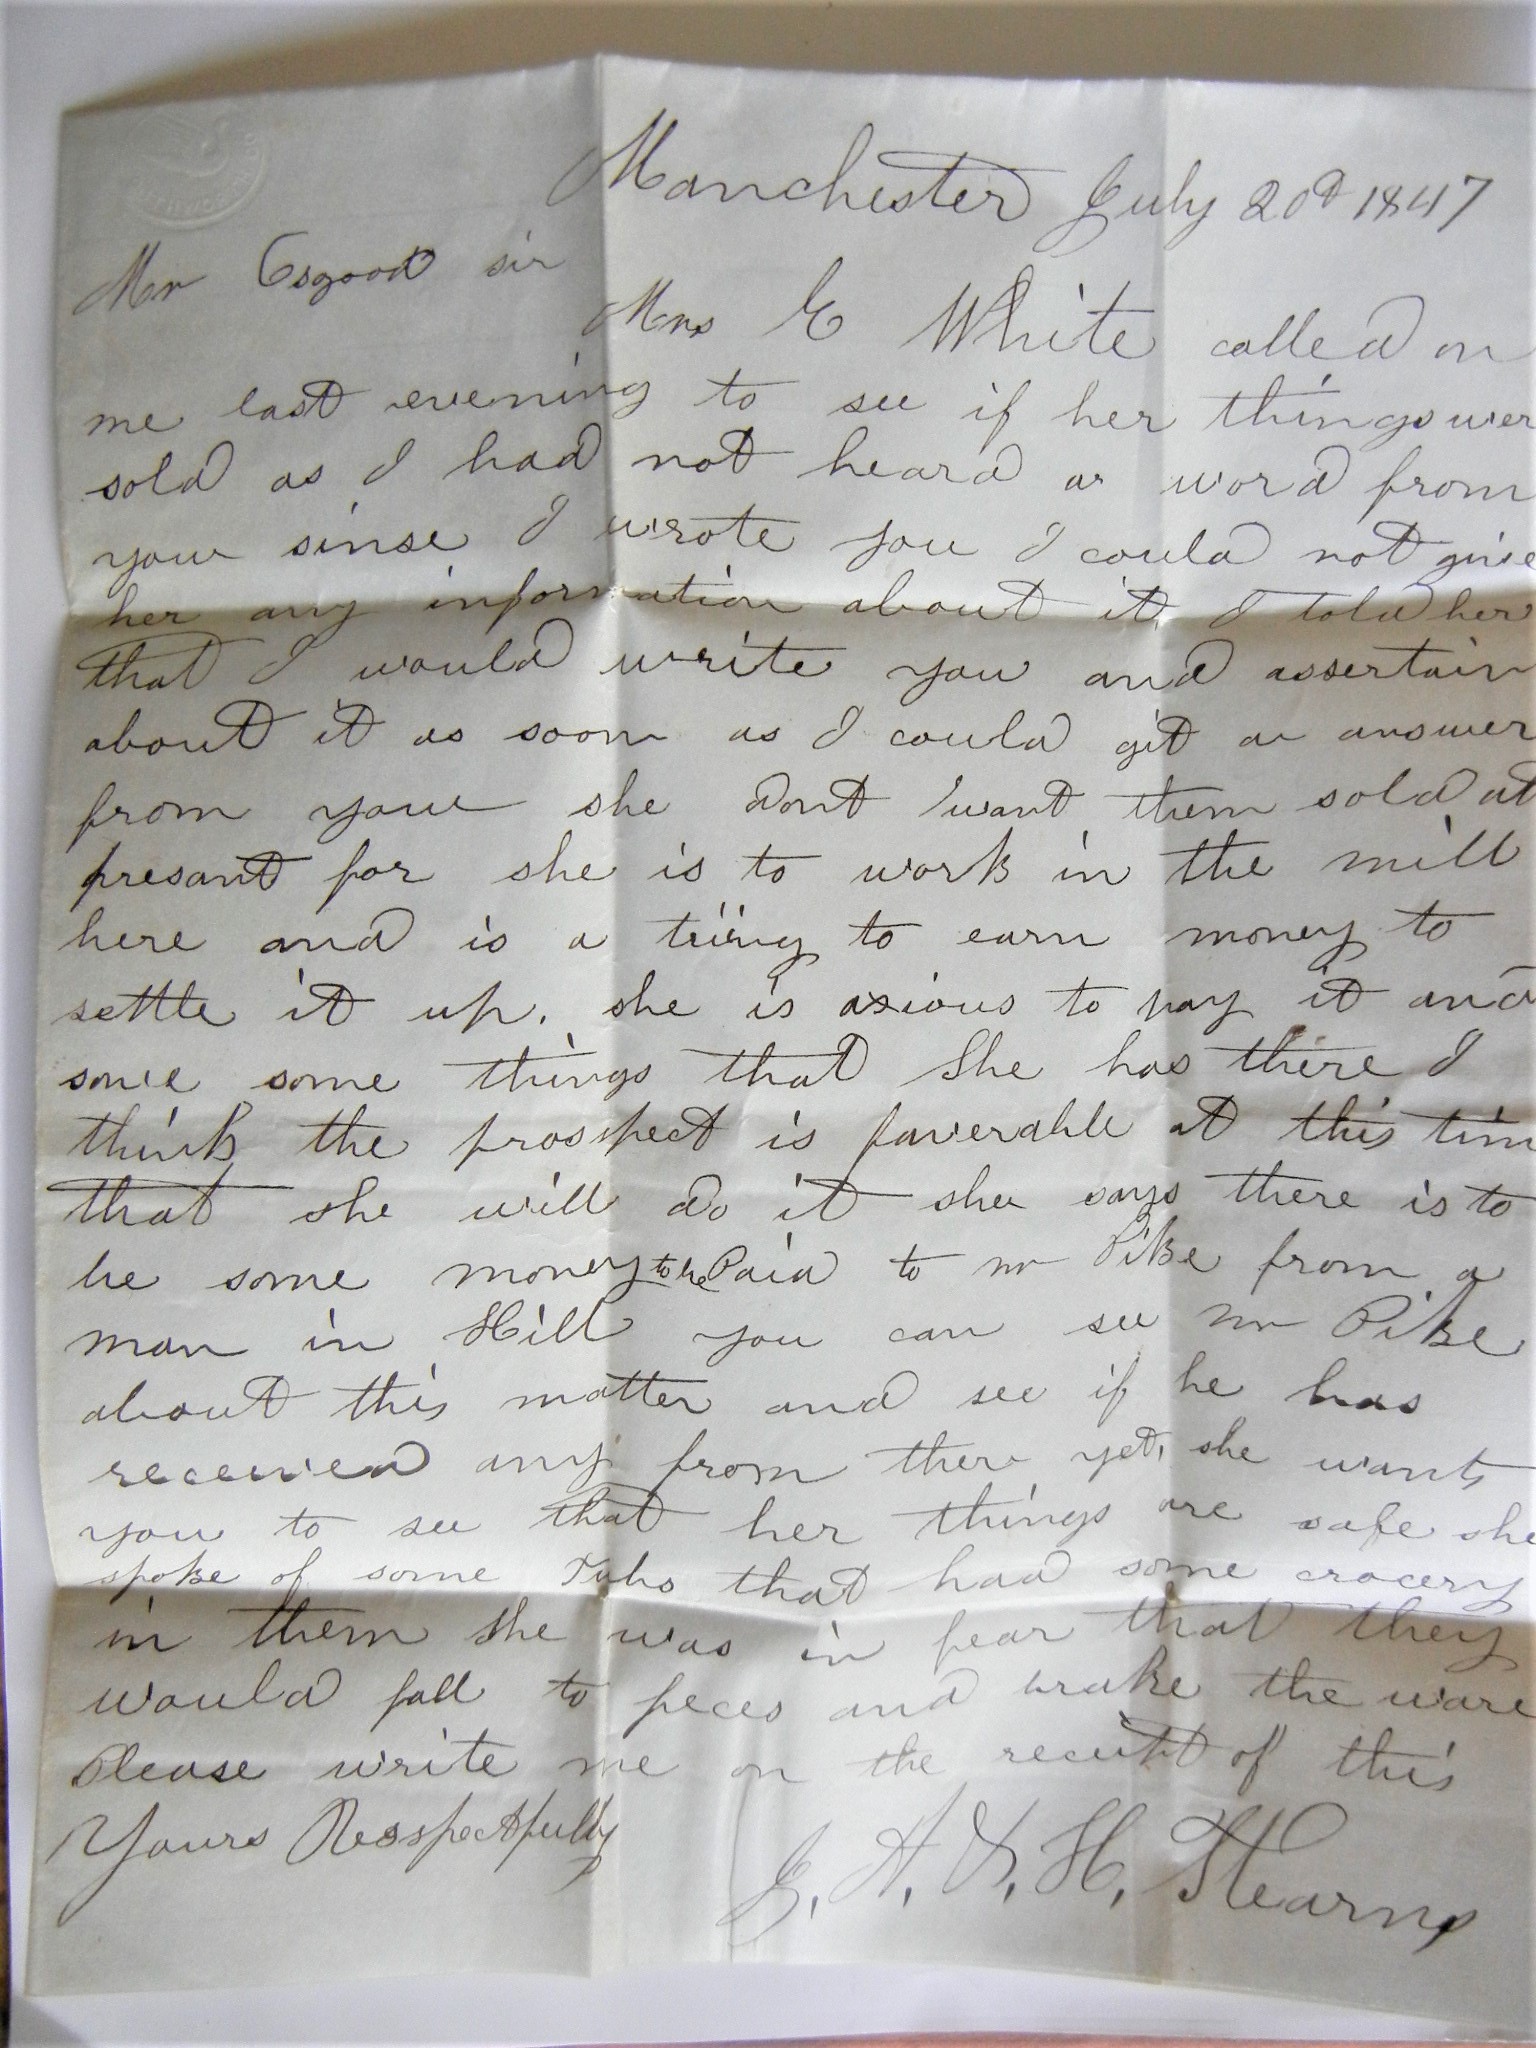 Manchester July 20d 1847
Mr Osgood sir
Mrs E White called on
me last evening to see if her things wer
sold as I had not heard a word from
you sinse I wrote you I could not give
her any information about it, I told her
that I would write you and assertain
about it as soon as I could git a answer
from you she dont want them sold at
presant for she is to work in the mill
here and is a triing to earn money to
settle it up. she is axious to pay it and
save some things that She has there I
think the prosspect is faverable at this tim
that she will do it she says there is to
be some money to be Paid to mr Pike from a
man in Hill you can see mr Pike
about this matter and see if he has
received any from there yet, she wants
you to see that her things are safe she
spoke of some Tubs that had some crocery
in them she was in fear that they
would fall to peces and brake the ware
Please write me on the receipt of this
Yours Resspectfully
J. A. & H. Stearns